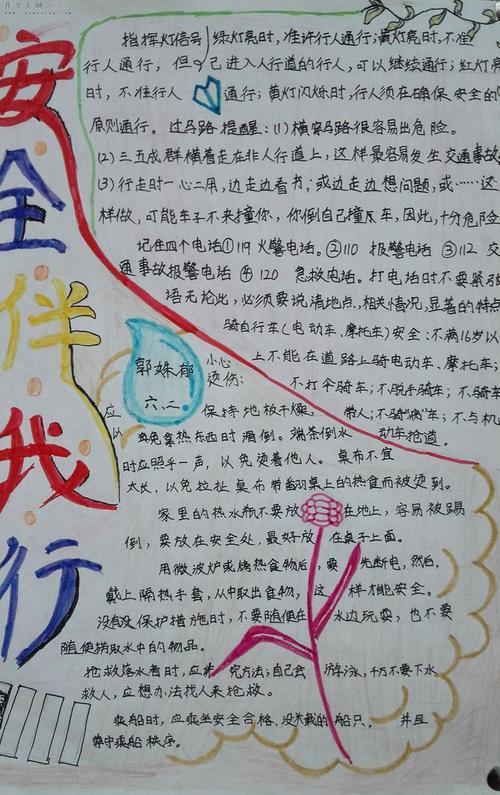 安全伴我行
指挥灯信号 绿灯亮时，准许行人通行；黄灯亮时，不准
行人通行，但已进入人行道的行人，可以继续通行；红灯亮
时，不准行人通行；黄灯闪烁时，行人须在确保安全的
原则通行。过马路提醒：(1)横穿马路很容易出危险。
(2)三五成群横着走在非人行道上，这样最容易发生交通事故
(3)行走时一心二用，边走边看书，或边走边想问题，或……这
样做，可能车子不来撞你，你倒自己撞了车，因此，十分危险
记住四个电话①119 火警电话。②110 报警电话 ③112 交
通事故报警电话 ④120 急救电话。打电话时不要紧张
语无论次，必须要说清地点，相关情况，显著的特点
骑自行车（电动车、摩托车）安全：不满16岁以
上不能在道路上骑电动车、摩托车；
不打伞骑车；不脱手骑车；不骑
带人；不骑"病"车；不与机
动车抢道。
郭姝郁
六.二
小心
烫伤：
应保持地板干燥，
以免拿热东西时滑倒。端茶倒水
时应照乎一声，以免烫着他人。桌布不宜
太长，以免拉扯桌布带翻桌上的热食而被烫到。
家里的热水瓶不要放在地上，容易被踢
倒，要放在安全处，最好放在桌子上面。
用微波炉或烤热食物后，要先断电，然后，
戴上隔热手套，从中取出食物，这样才能安全。
没有设保护措施时，不要随便在水边玩耍，也不要
随便捞取水中的物品。
抢救落水者时，应讲究方法；自己会游泳，千万不要下水
救人，应想办法找人来抢救。
乘船时，应乘坐安全合格、没米载的船只，并且
遵守乘船秩序。